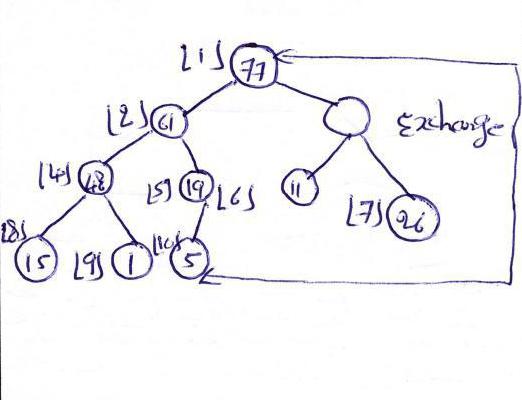 [1] 77
[2] 61
Exchange
[4] 48 [5] 19 [6] 11
[7] 26
[8] 15 [9] 1 [10] 5